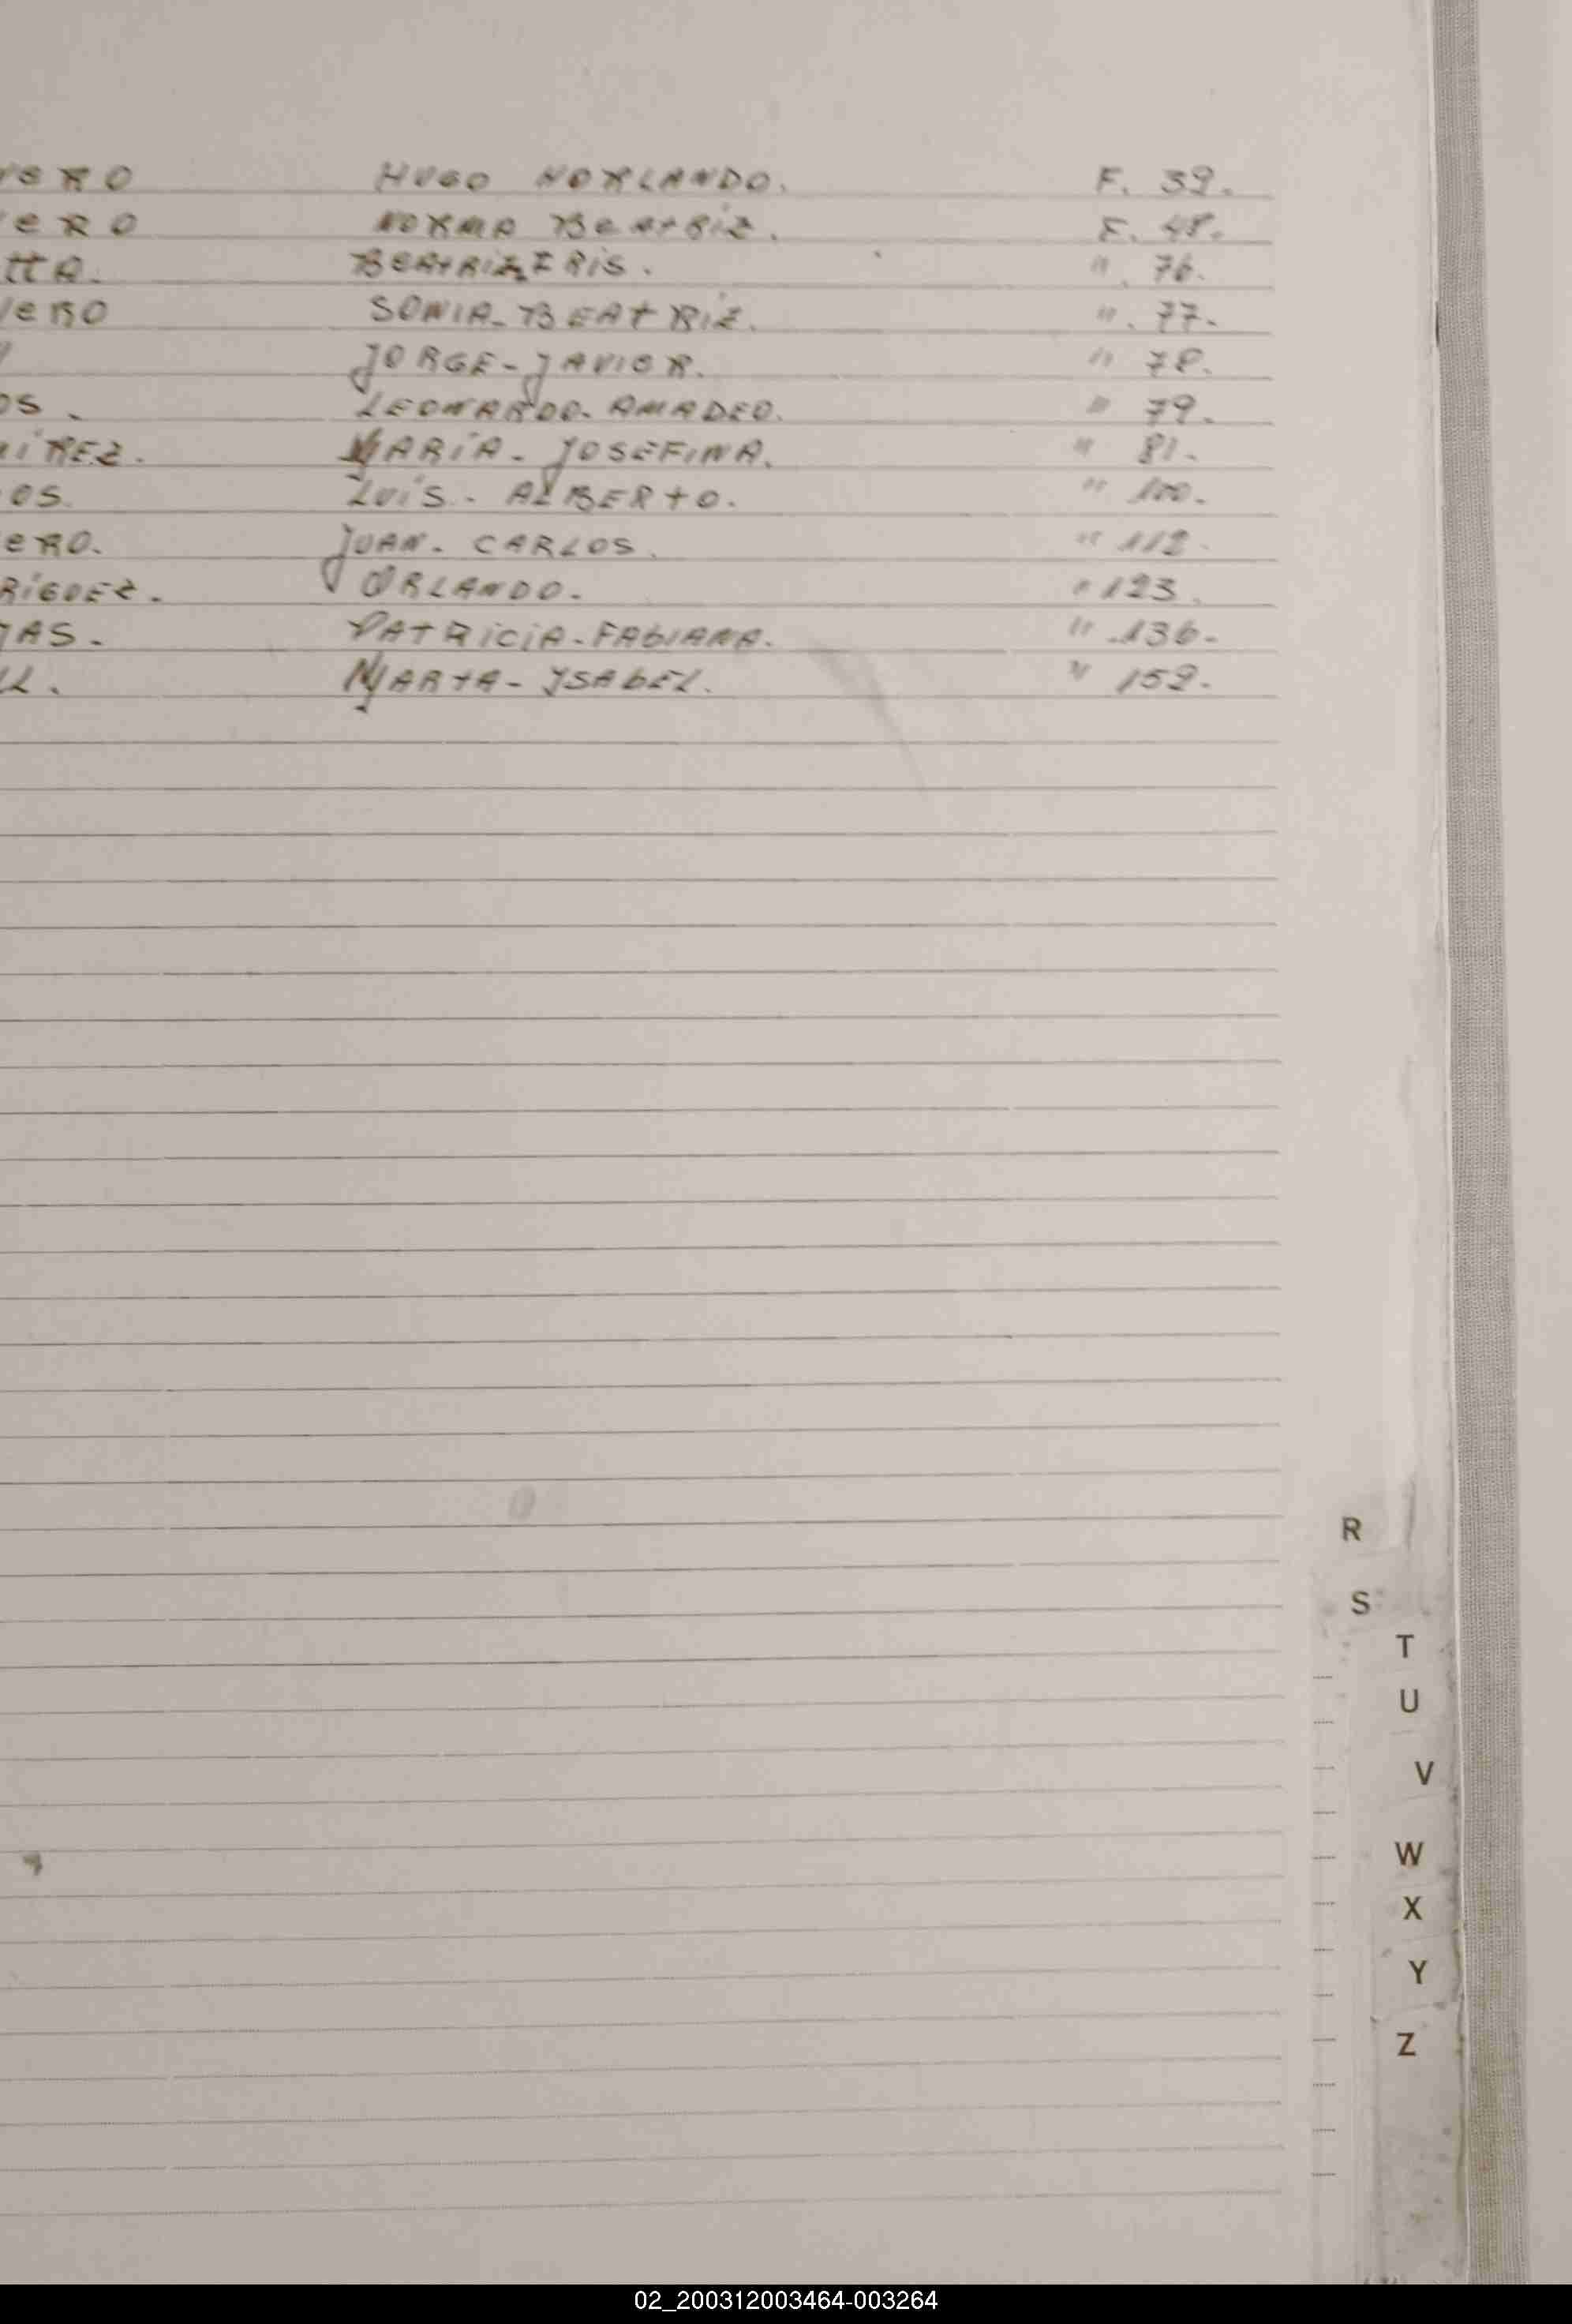 VERO HUGO NORLANDO. F. 39.
VERO NORMA BEATRIZ. F. 48.
TTA. BEATRIZ IRIS. ". 76.
VERO SONIA-BEATRIZ. ". 77.
JORGE-JAVIER. " 78.
OS. LEONARDO-AMADEO. " 79.
MIREZ. MARÍA-JOSEFINA. " 81.
OS. LUÍS.-ALBERTO. " 100.
ERO. JUAN-CARLOS. " 112.
RIGUEZ. ORLANDO. " 123.
JAS. PATRICIA-FABIANA. " 136.
LL. MARTA-YSABEL. " 159.
R
S
T
U
V
W
X
Y
Z
02_200312003464-003264